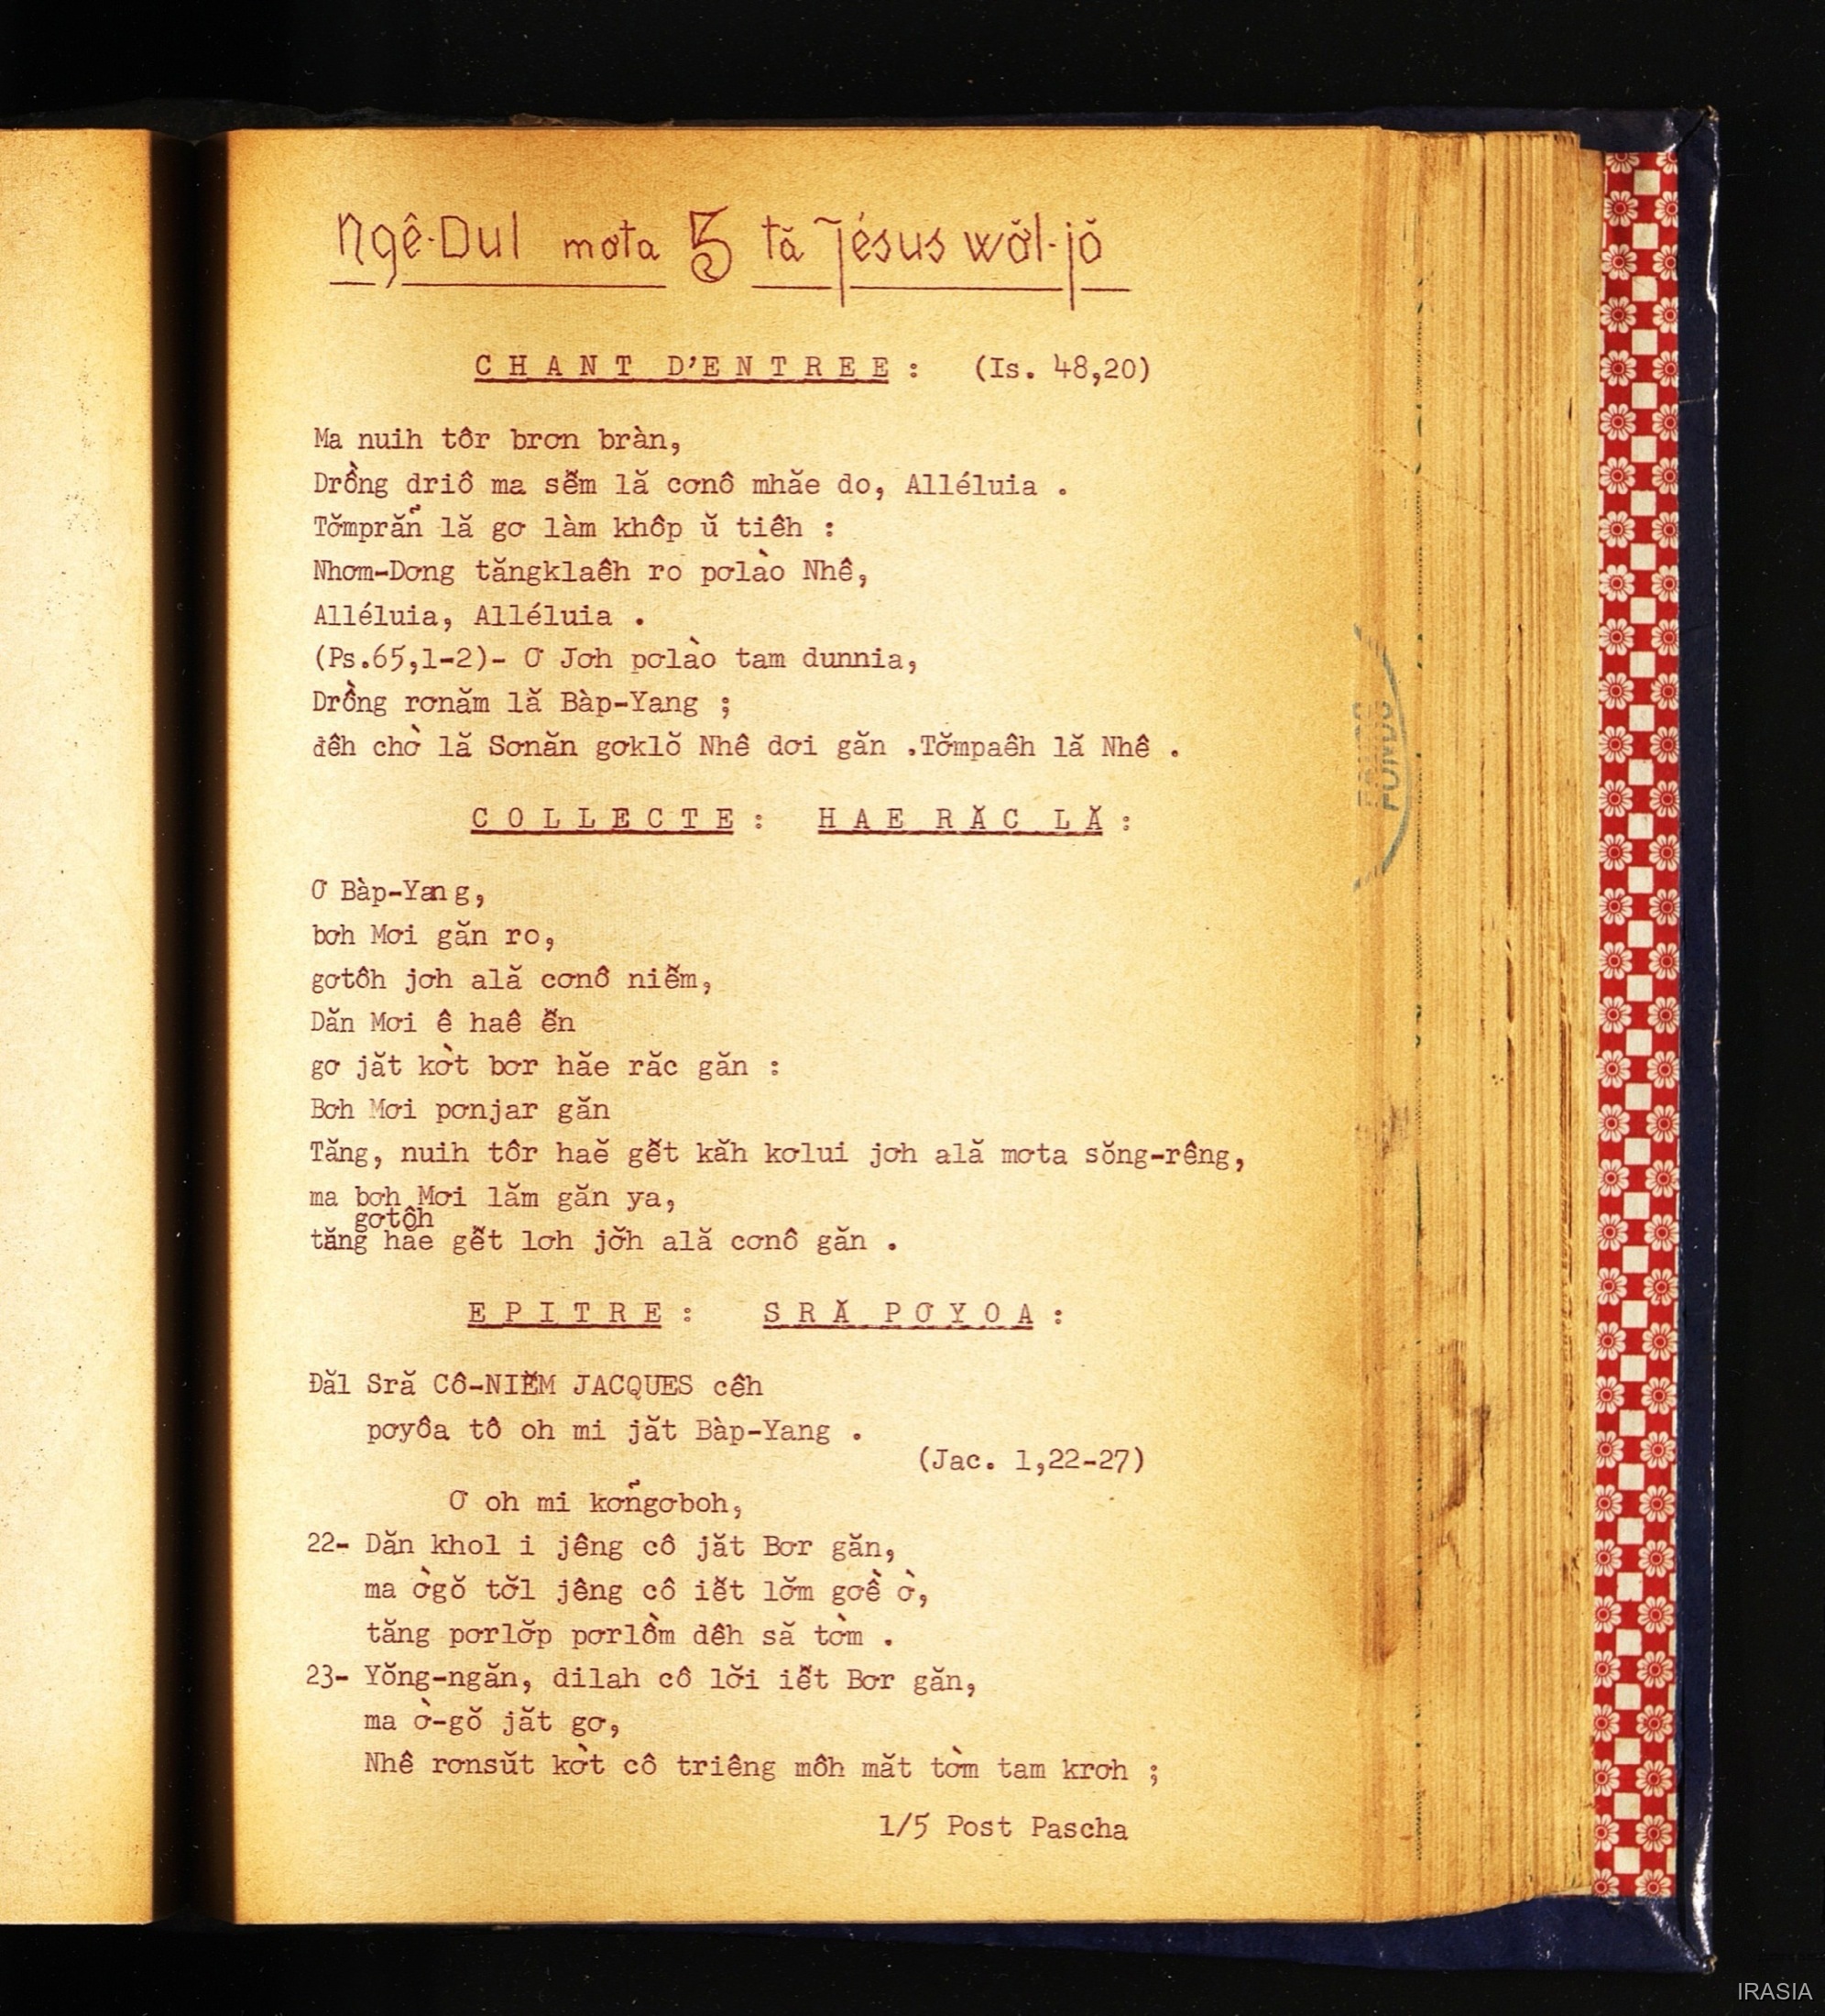 Ngê-Dul mơta 5 tă Jésus wơ̆l-jŏ
CHANT D'ENTREE : (Is. 48,20)
Ma nuih tôr brơn bràn,
Drồng driô ma sễm lă cơnô mhăe do, Alléluia .
Tơ̆mprăn̆ lă gơ làm khôp ŭ tiêh :
Nhơm-Dơng tăngklaêh ro pơlào Nhê,
Alléluia, Alléluia .
(Ps.65,1-2)- Ơ Jơh pơlào tam dunnia,
Drồng rơnăm lă Bàp-Yang ;
đêh chờ lă Sơnăn gơklŏ Nhê dơi găn .Tơ̆mpaêh lă Nhê .
COLLECTE : HAE RĂC LĂ :
Ơ Bàp-Yang,
bơh Mơi găn ro,
gơtôh jơh ală cơnô niê̆m,
Dăn Mơi ê haê ê̆n
gơ jăt kờt bơr hăe răc găn :
Bơh Mơi pơnjar găn
Tăng, nuih tôr haĕ gê̆t kăh kơlui jơh ală mơta sŏng-rêng,
ma bơh Mơi lăm găn ya,
gơtôh
tăng hăe gê̆t lơh jơ̆h ală cơnô găn .
EPITRE : SRĂ PƠYOA :
Đăl Sră Cô-NIÊ̆M JACQUES cêh
pơyôa tô oh mi jăt Bàp-Yang .
(Jac. 1,22-27)
Ơ oh mi kơn̆gơboh,
22- Dăn khol i jêng cô jăt Bơr găn,
ma ờgŏ tơ̆l jêng cô iê̆t lơ̆m gơề ờ,
tăng pơrlơ̆p pơrlồm dêh să tờm .
23- Yŏng-ngăn, dilah cô lơ̆i iê̆t Bơr găn,
ma ờ-gŏ jăt gơ,
Nhê rơnsŭt kờt cô triêng môh măt tờm tam krơh ;
1/5 Post Pascha
IRASIA